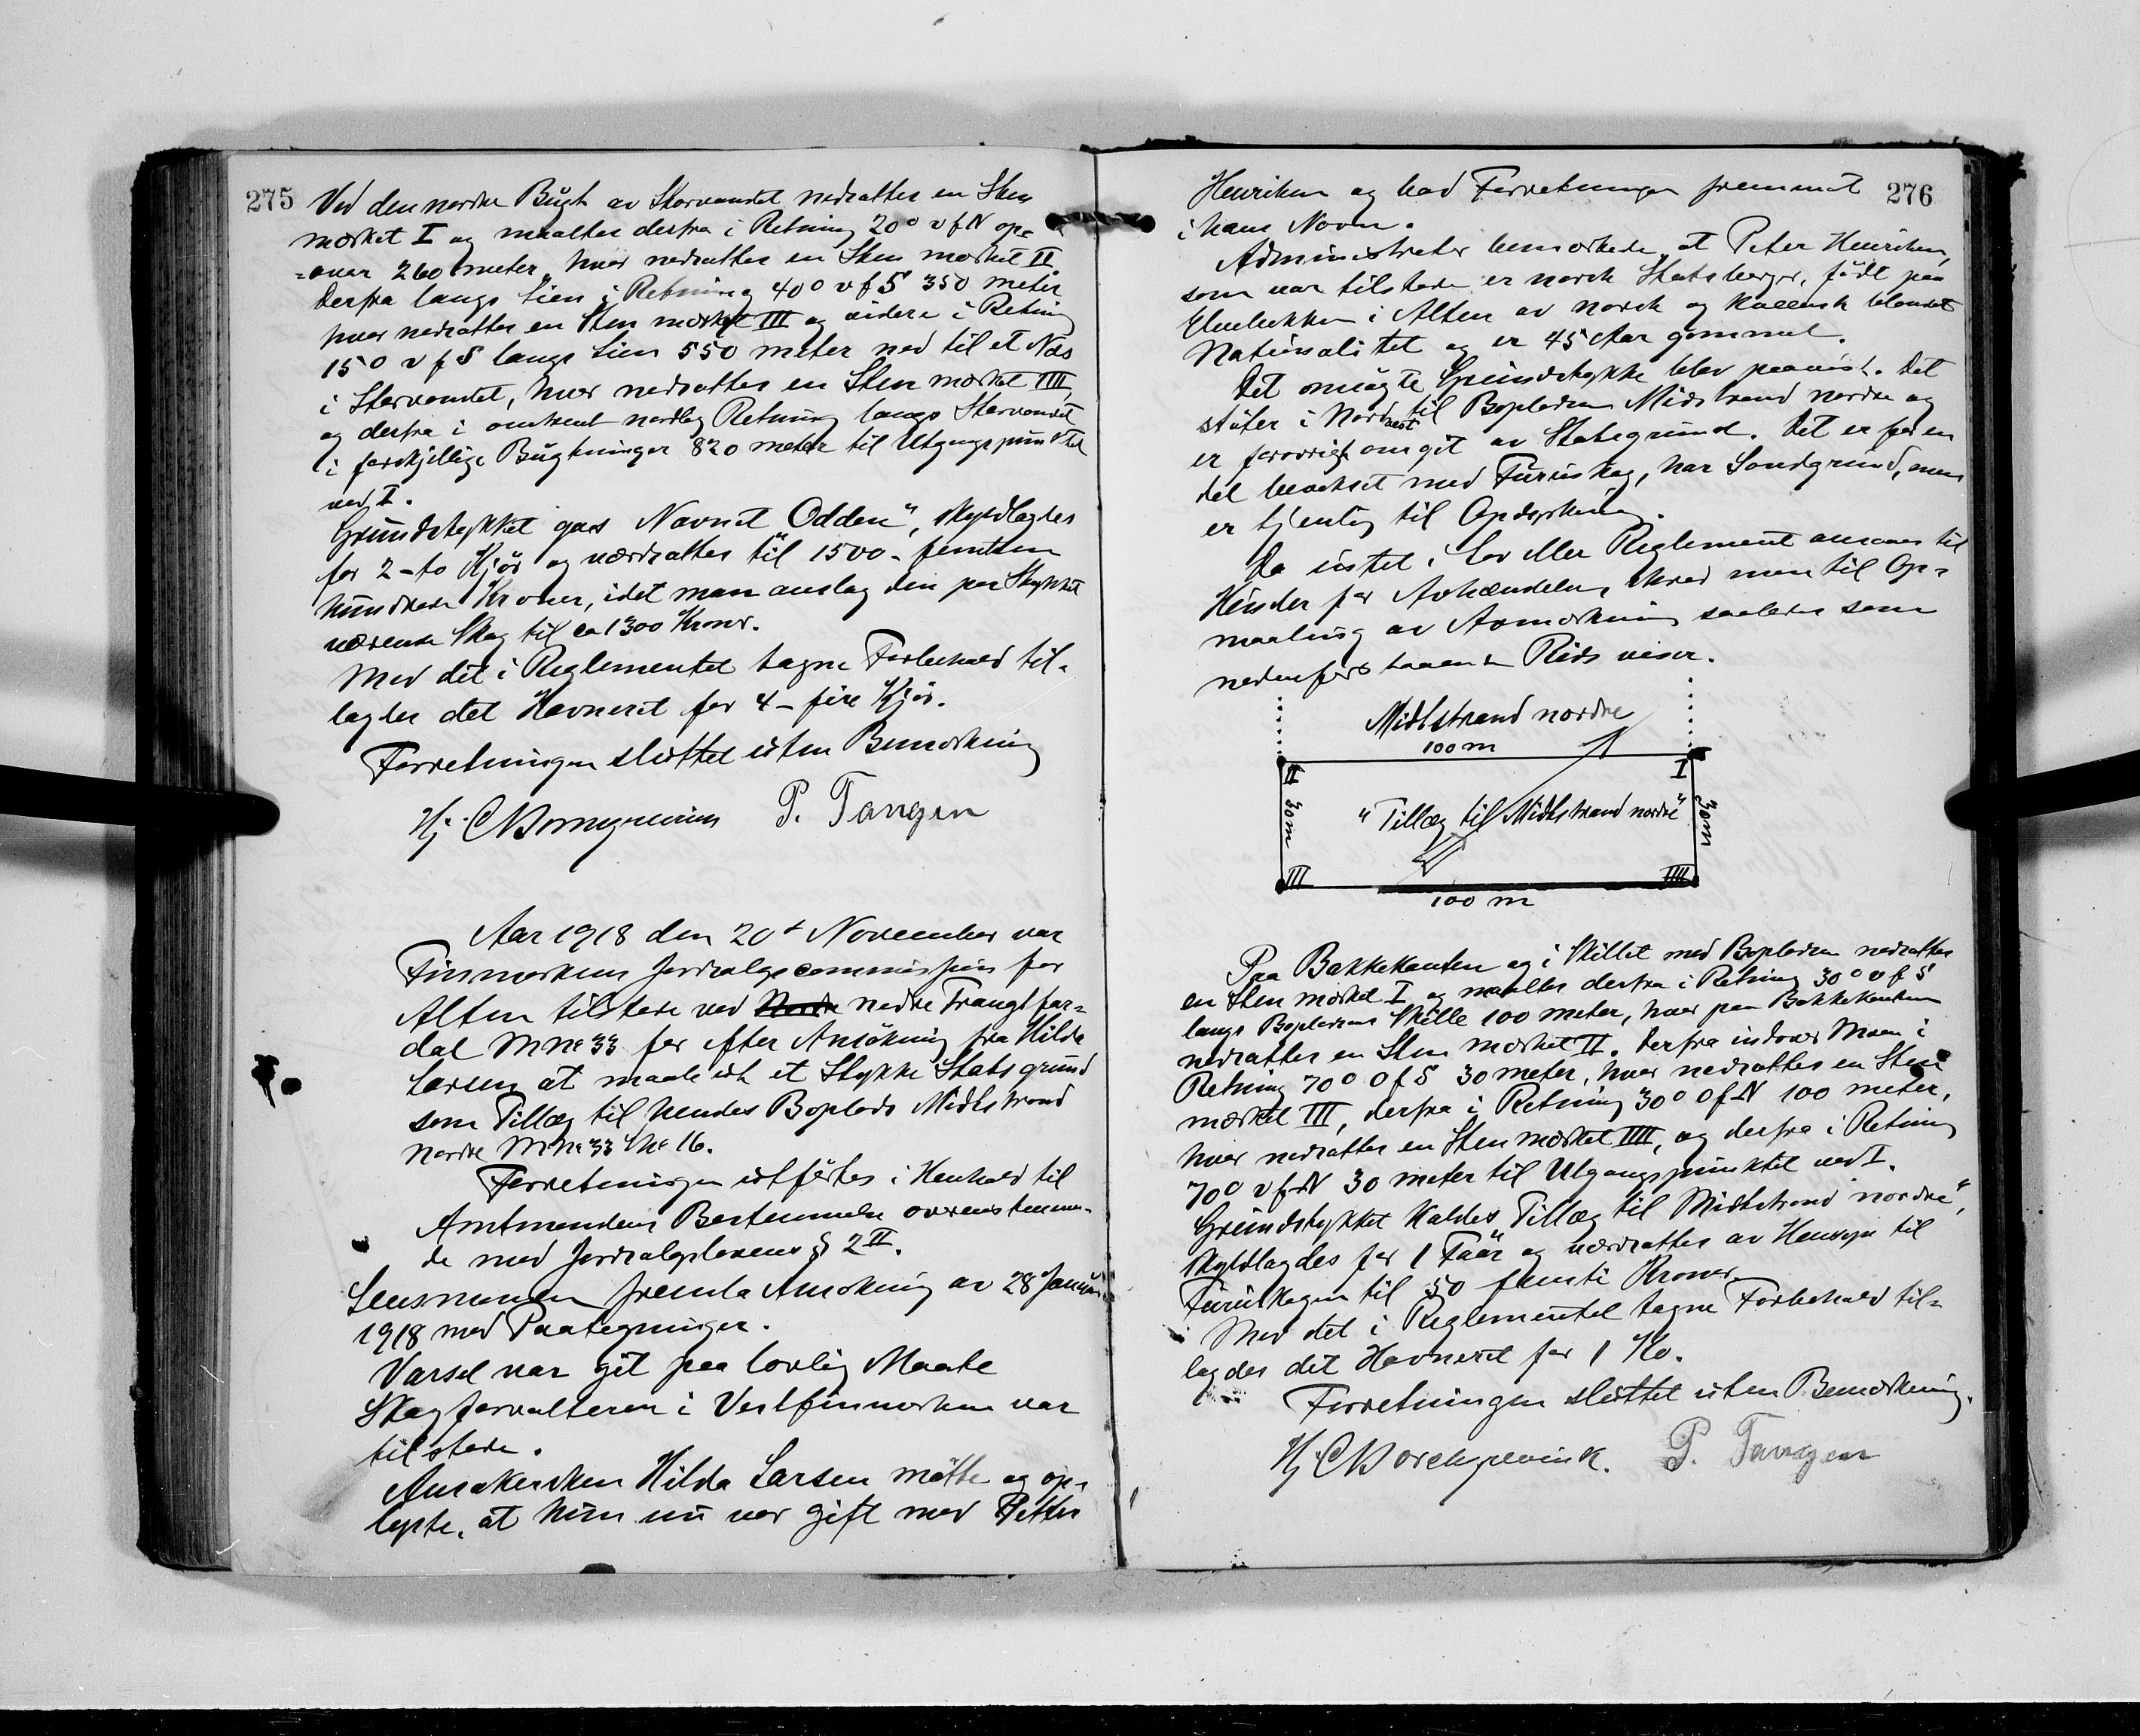 275
Ved den nordre Bugt av Storvandet nedsattes en Sten
mærket I og maaltes derfra i Retning 20° v f N op-
=over 260 meter, hvor nedsattes en Sten mærket II
Derfra langs Lien i Retning 40° v f S 350 meter
hvor nedsattes en Sten mærket III og videre i Retning
15° v f S langs Lien 550 meter ned til et Næs
i Storvandet, hvor nedsattes en Sten mærket IIII,
og derfra i omtrent nordlig Retning langs Storvandet
i forskjellige Bugtninger 820 meter til Utgangspunktet
ved I.
Grundstykket gaves Navnet "Odden", skyldlagdes
for 2 - to Kjør og værdsattes til 1500 - femten
hundrede Kroner, idet man anslog den paa Stykket
værende Skog til ca 1300 Kroner.
Med det i Reglementet tagne Forbehold til-
lagdes det Havneret for 4 - fire Kjør.
Forretningen sluttet uten Bemerkning
Hj. C Borchgrevink P. Tangen
Aar 1918 den 20de November var
Finmarkens Jordsalgscommission for
Alten tilstede ved nedre Trangfar-
dal M No 33 for efter Ansökning fra Hilda
Larsen at maale ut et Stykke Statsgrund
som Tillæg til hendes Boplads Midtstrand
nordre M No 33 L No 16.
Forretningen utførtes i Henhold til
Amtmandens Bestemmelse overenstemmen-
de med Jordsalgslovens § 2 II.
Lensmanden fremla Ansökning av 28 Januar
1918 med Paategninger.
Varsel var git paa lovlig Maate
Skogforvalteren i Vestfinmarken var
tilstede.
Ansøkersken Hilda Larsen møtte og op-
lyste, at hun nu var gift med Petter
276
Henriksen og bad Forretningen fremmet
i hans Navn.
Administrator bemerkede, at Peter Henriksen,
som var tilstede er norsk Statsborger, født paa
Elvebakken i Alten av norsk og kvensk blandet
Nationalitet og er 45 Aar gammel.
Det ansøgte Grundstykke blev paavist. Det
støter i Nordvest til Bopladsen Midtstrand nordre og
er forøvrigt omgit av Statsgrund. Det er for en
del bevokset med Furuskog, har Sandgrund, men
er tjenlig til Opdyrkning.
Da intet i Lov eller Reglement ansaaes til
Hinder for Avhændelsen, skred man til Op-
maaling av Avmerkning saaledes som
nedenfor staaende Rids viser.
Midtstrand nordre
100 m
II I
30 m "Tillæg til Midtstrand nordre" 30 m
III IIII
100 m
Paa Bakkekanten og i Skillet med Bopladsen nedsattes
en Sten mærket I og maaltes derfra i Retning 30° v f S
langs Bopladsens Skille 100 meter, hvor paa Bakkekanten
nedsattes en Sten mærket II. Derfra indover Moen i
Retning 70° O f S 30 meter, hvor nedsattes en Sten
mærket III, derfra i Retning 30° O f N 100 meter,
hvor nedsattes en Sten mærket IIII, og derfra i Retning
70° v f N 30 meter til Utgangspunktet ved I.
Grundstykket kaldes "Tillæg til Midtstrand nordre",
skyldlagdes for 1 Faar og værdsattes av Hensyn til
Furuskogen til 50 femti Kroner.
Med det i Reglementet tagne Forbehold til-
lagdes det Havneret for 1 Ko.
Forretningen sluttet uten Bemerkning.
Hj C Borchgrevink. P. Tangen